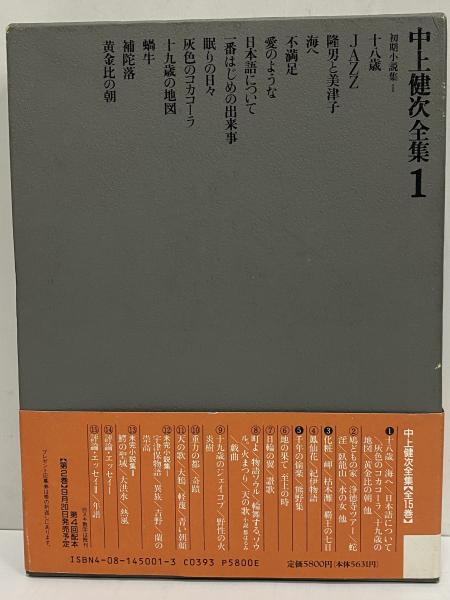 中上健次全集1
初期小説集Ⅰ
十八歳
JAZZ
隆男と美津子
海へ
不満足
愛のような
日本語について
一番はじめの出来事
眠りの日々
灰色のコカコーラ
十九歳の地図
蝸牛
補陀落
黄金比の朝
中上健次全集【全15巻】
❶十八歳/海へ/日本語について
/灰色のコカコーラ/十九歳の
地図/黄金比の朝 他
②鳩どもの家/浄徳寺ツアー/蛇
淫/臥龍山/水の女 他
❸化粧/岬/枯木灘/覇王の七日
④鳳仙花/紀伊物語
❺千年の愉楽/熊野集
⑥地の果て 至上の時
⑦日輪の翼/讃歌
⑧町よ/物語ソウル/輪舞する、ソウ
ル。/火まつり/天の歌 小説都はるみ
/戯曲
⑨十九歳のジェイコブ/野性の火
炎樹
⑩重力の都/奇蹟
⑪天の歌/大鴉/軽蔑/青い朝顔
⑫未完小説集Ⅰ
宇津保物語/異族/吉野/蘭の
崇高
⑬未完小説集Ⅱ
鰐の聖域/大洪水/熱風
⑭評論・エッセイⅠ
⑮評論・エッセイⅡ/年譜
白ヌキ数字は既刊
第4回配本
【第2巻】9月20日発売予定
プレゼント応募券は帯の折返しにあります。
ISBN4-08-145001-3 C0393 P5800E
定価5800円(本体5631円)